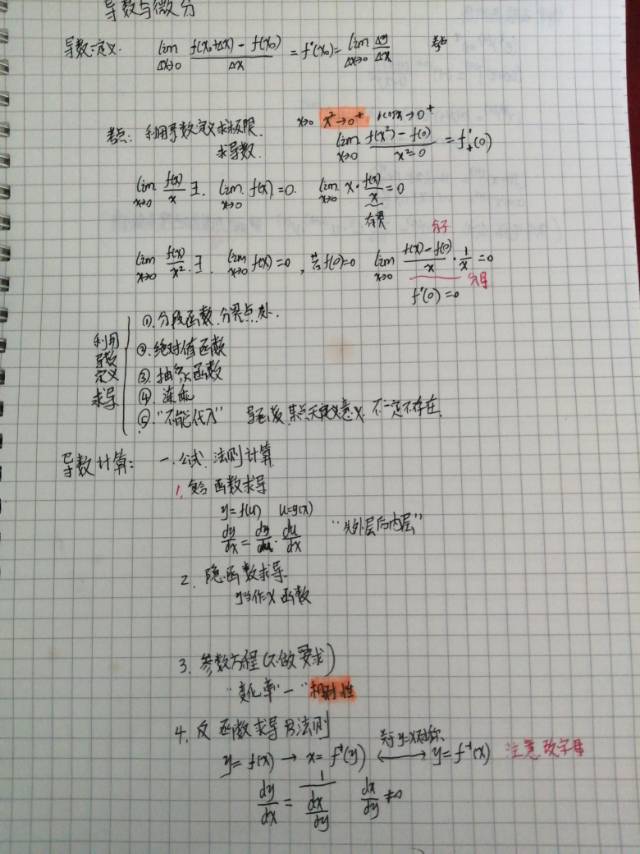 导数与微分
导数定义: lim Δx→0 (f(x₀+Δx) - f(x₀))/Δx = f'(x₀) = lim Δx→0 Δy/Δx
x→0 x²→0⁺ 1-cosx→0⁺
考点: 利用导数定义求极限. lim x→0 (f(x²) - f(0))/(x²-0) = f'₊(0)
求导数.
lim x→0 f(x)/x ∃. lim x→0 f(x) = 0. lim x→0 x·f(x)/x = 0
lim x→0 f(x)/x² ∃. lim x→0 f(x) = 0, 若 f(0)=0 lim x→0 (f(x)-f(0))/x · 1/x = 0
f'(0) = 0
利用导数定义求导
①. 分段函数, 分界点处.
②. 绝对值函数
③. 抽象函数
④. 连乘
⑤. "不能代入" 导函数某点无定义 不一定不存在.
导数计算: 一. 公式. 法则计算
1. 复合函数求导
y = f(u) u=φ(x)
dy/dx = dy/du · du/dx "先外层后内层"
2. 隐函数求导.
y当作x函数
3. 参数方程(不做要求)
"变化率" — "相对性
4. 反函数求导法则
y = f(x) → x = f⁻¹(y) ⟷ 关于y=x对称 y = f⁻¹(x) 注意改字母
dy/dx = 1/(dx/dy) dx/dy ≠0